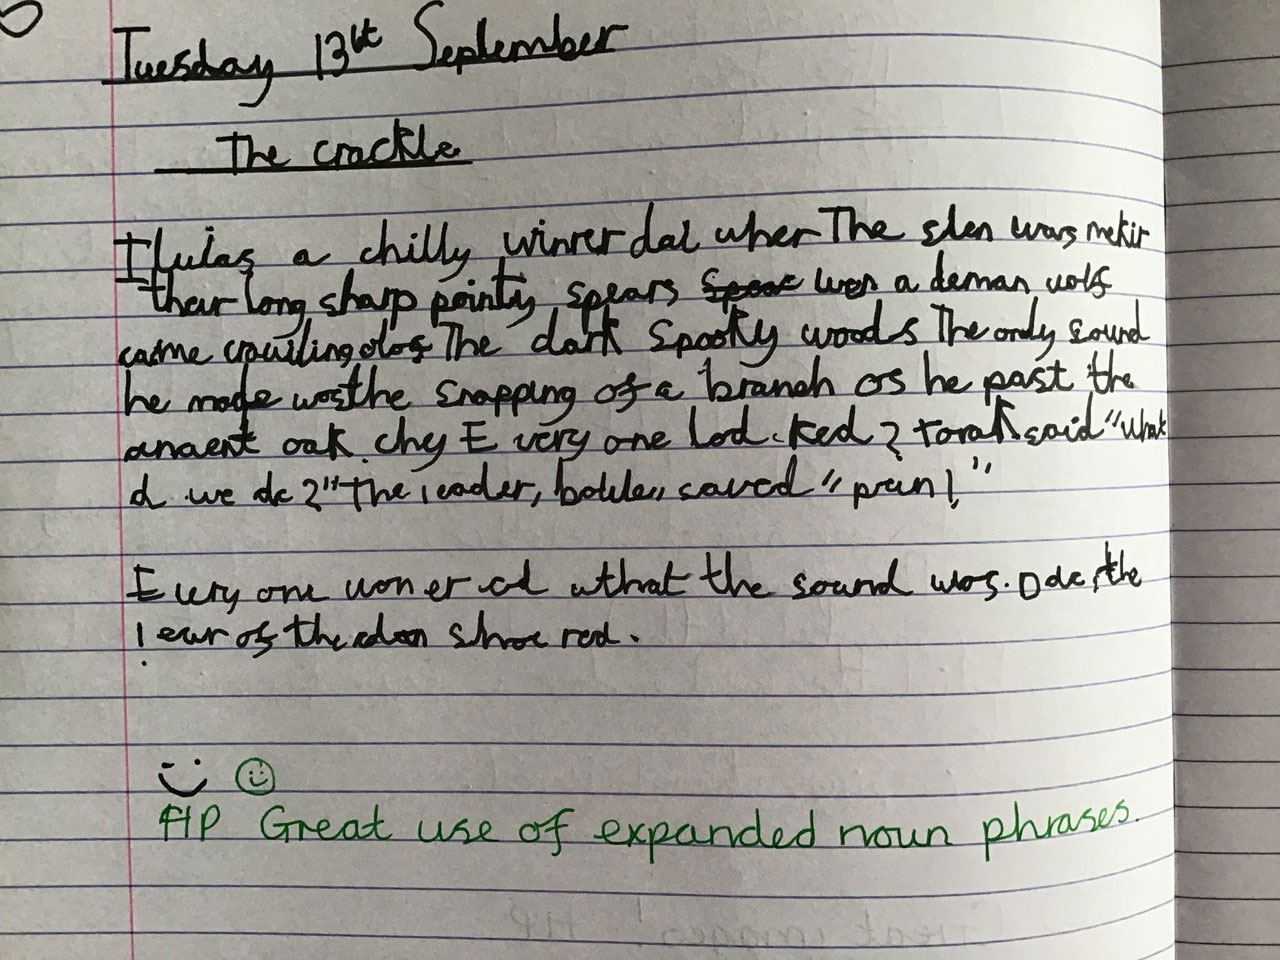 Tuesday 13th September
The crackle
It was a chilly winrer dal when The slen wars mekir
theur long sharp pointy spears Spear wen a deman wolf
came crawling The dark Spooky woods The only sound
he made wasthe snapping of a branch as he past the
ancent oak. chy E very one lod.ked ? torak said "what
d we do?" the leader, saved " !"
Every one won er ed wthat the sound was. , the
ear of the shoe red.
HP Great use of expanded noun phrases.